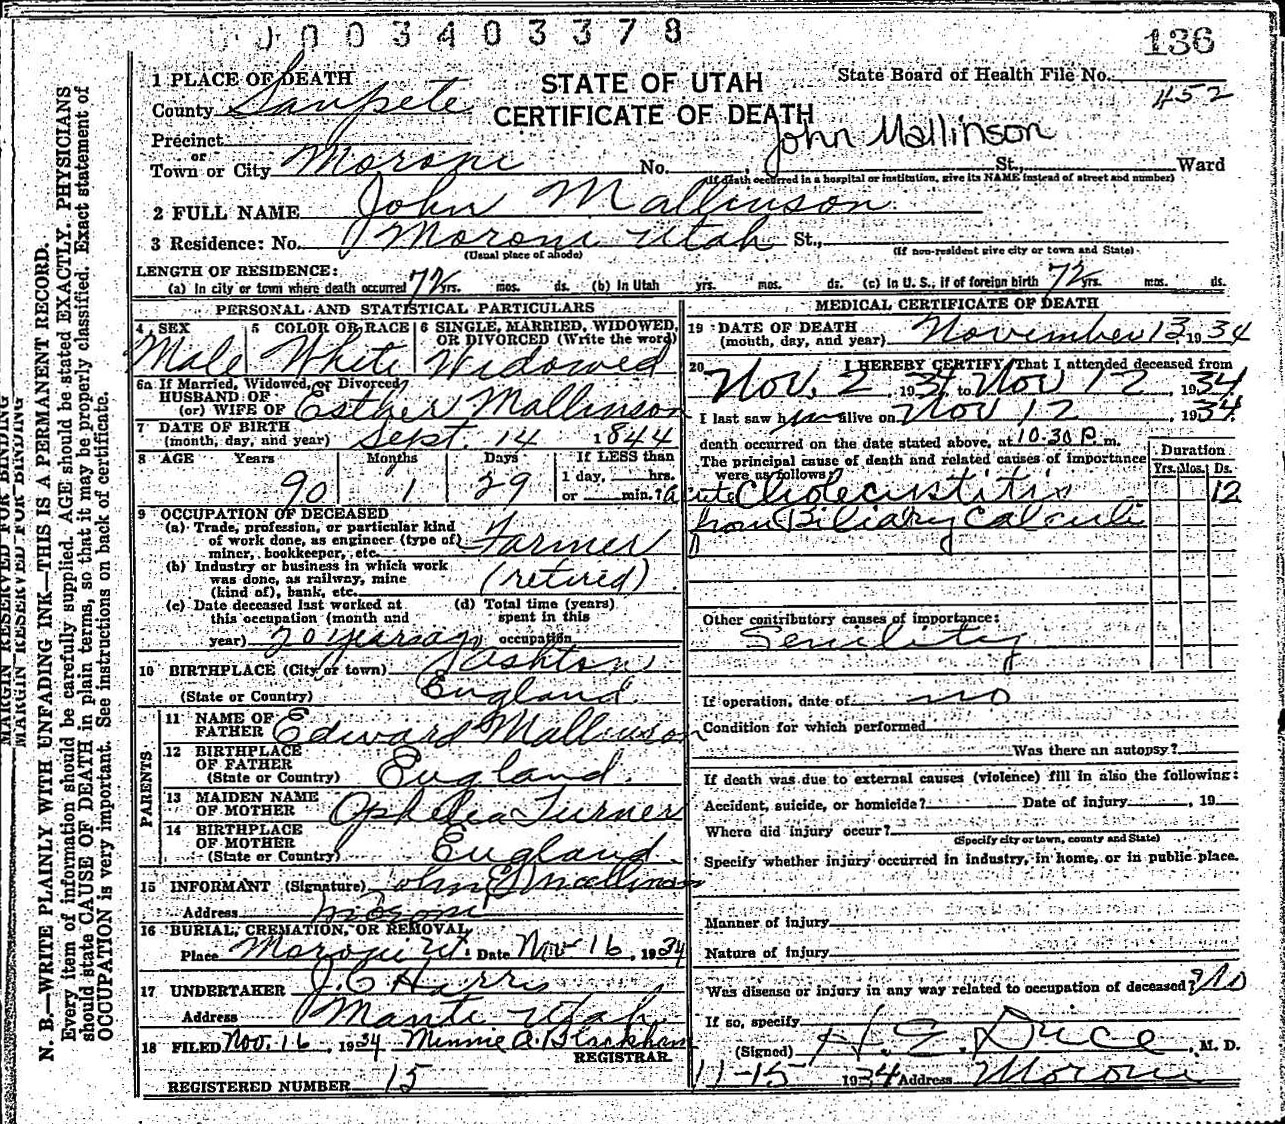 0003403378
136
1 PLACE OF DEATH
STATE OF UTAH
CERTIFICATE OF DEATH
State Board of Health File No.
452
County Sanpete
Precinct
or
Town or City Moroni No. St., Ward
John Mallinson
(If death occurred in a hospital or institution, give its NAME instead of street and number)
2 FULL NAME John Mallinson
3 Residence: No. Moroni Utah St.,
(Usual place of abode) (If non-resident give city or town and State)
LENGTH OF RESIDENCE:
(a) In city or town where death occurred 72 yrs. mos. ds. (b) In Utah yrs. mos. ds. (c) In U. S., if of foreign birth 72 yrs. mos. ds.
PERSONAL AND STATISTICAL PARTICULARS
4 SEX Male
5 COLOR OR RACE White
6 SINGLE, MARRIED, WIDOWED, OR DIVORCED (Write the word) Widowed
6a If Married, Widowed, or Divorced
HUSBAND OF
(or) WIFE OF Esther Mallinson
7 DATE OF BIRTH
(month, day, and year) Sept. 14 1844
8 AGE Years Months Days If LESS than
1 day, hrs.
or min.?
90 1 29
9 OCCUPATION OF DECEASED
(a) Trade, profession, or particular kind
of work done, as engineer (type of)
miner, bookkeeper, etc. Farmer
(b) Industry or business in which work
was done, as railway, mine
(kind of), bank, etc. (retired)
(c) Date deceased last worked at
this occupation (month and
year) 20 years ago
(d) Total time (years)
spent in this
occupation
10 BIRTHPLACE (City or town) Ashton
(State or Country) England
PARENTS
11 NAME OF
FATHER Edward Mallinson
12 BIRTHPLACE
OF FATHER
(State or Country) England.
13 MAIDEN NAME
OF MOTHER Ophelia Turner
14 BIRTHPLACE
OF MOTHER
(State or Country) England.
15 INFORMANT (Signature) John E Mallinson
Address Moroni
16 BURIAL, CREMATION, OR REMOVAL
Place Moroni Ut. Date Nov 16, 1934
17 UNDERTAKER J. C Harris
Address Manti Utah.
18 FILED Nov. 16, 1934 Minnie A. Blackham
REGISTRAR
REGISTERED NUMBER 15
MEDICAL CERTIFICATE OF DEATH
19 DATE OF DEATH
(month, day, and year) November 13 1934
20 I HEREBY CERTIFY, That I attended deceased from
Nov. 2, 1934, to Nov 12, 1934
I last saw him alive on Nov 12, 1934
death occurred on the date stated above, at 10:30 P. m.
The principal cause of death and related causes of importance
were as follows:
Duration
Yrs. Mos. Ds.
Acute Cholecistitis 12
from Biliary Calculi
Other contributory causes of importance:
Senility
If operation, date of no
Condition for which performed
Was there an autopsy?
If death was due to external causes (violence) fill in also the following:
Accident, suicide, or homicide? Date of injury, 19
Where did injury occur?
(Specify city or town, county and State)
Specify whether injury occurred in industry, in home, or in public place.
Manner of injury
Nature of injury
Was disease or injury in any way related to occupation of deceased? No
If so, specify
(Signed) H. E. Dice, M. D.
11-15 1934 Address Moroni
MARGIN RESERVED FOR BINDING
MARGIN RESERVED FOR BINDING
N. B.—WRITE PLAINLY WITH UNFADING INK—THIS IS A PERMANENT RECORD.
Every item of information should be carefully supplied. AGE should be stated EXACTLY. PHYSICIANS
should state CAUSE OF DEATH in plain terms, so that it may be properly classified. Exact statement of
OCCUPATION is very important. See instructions on back of certificate.